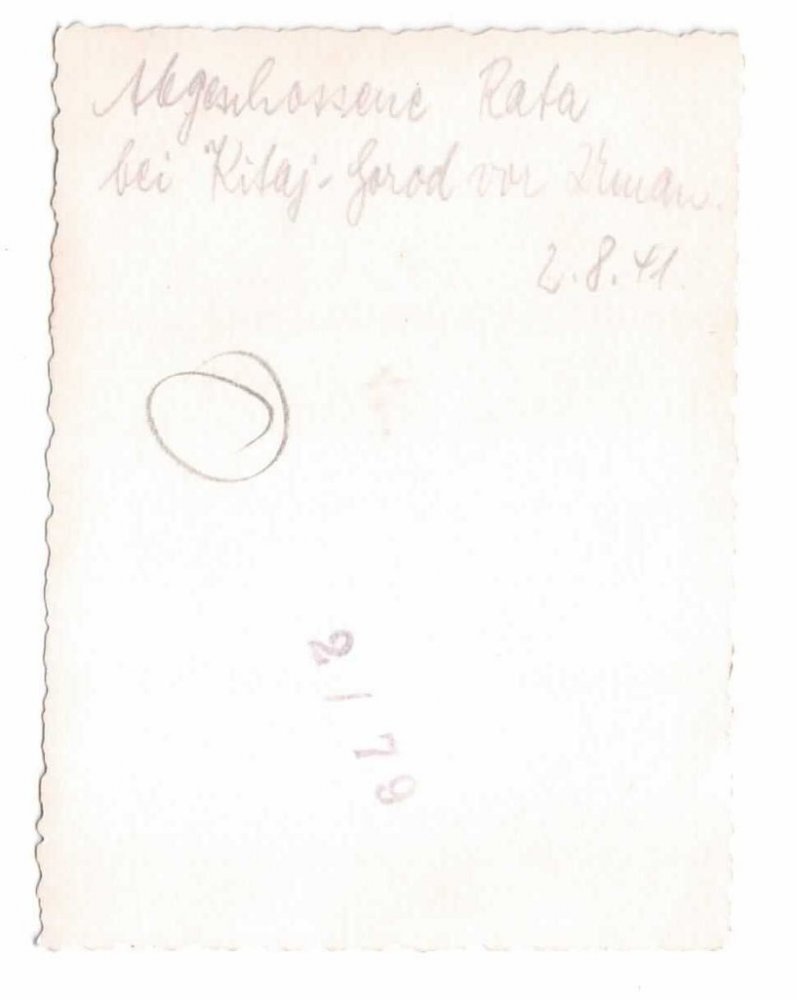 Abgeschossene Rata
bei Kitaj-Gorod vor Uman.
2.8.41
2/79